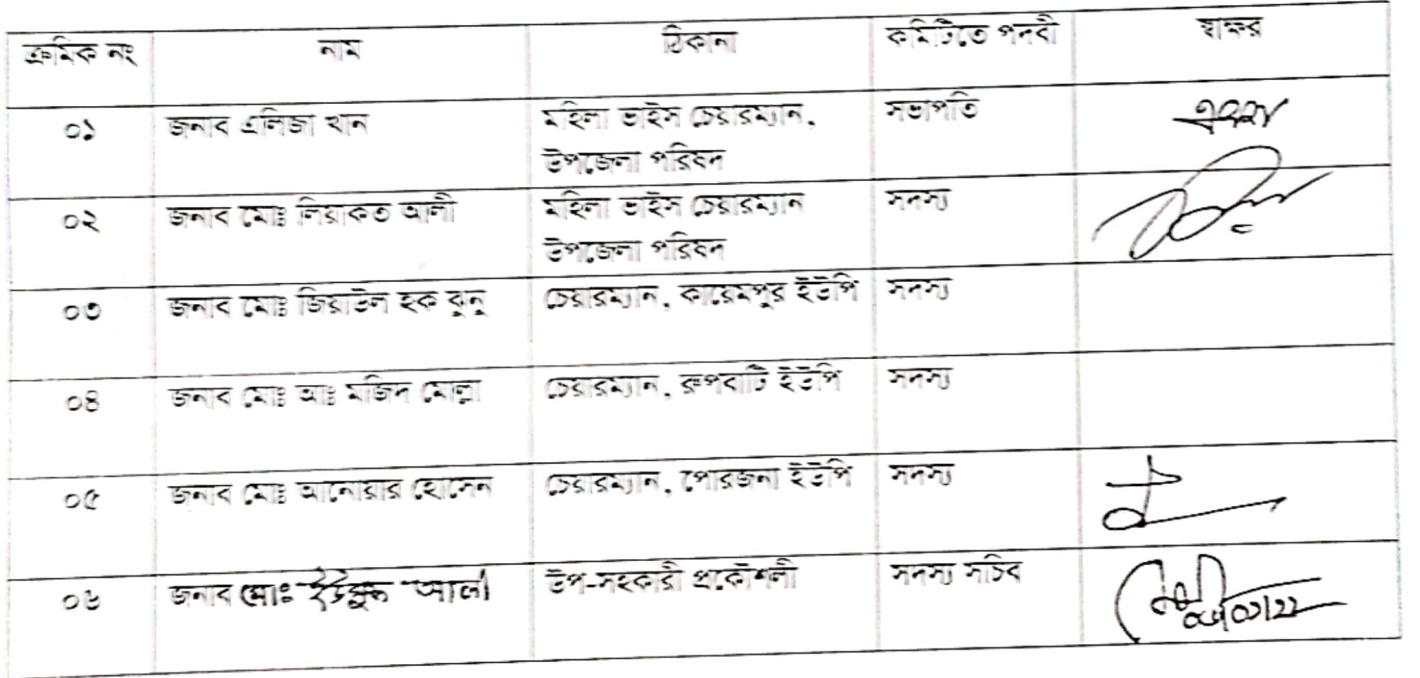 ক্রমিক নং নাম ঠিকানা কমিটিতে পদবী স্বাক্ষর
০১ জনাব এলিজা খান মহিলা ভাইস চেয়ারম্যান, সভাপতি
উপজেলা পরিষদ
০২ জনাব মোঃ লিয়াকত আলী মহিলা ভাইস চেয়ারম্যান সদস্য
উপজেলা পরিষদ
০৩ জনাব মোঃ জিয়াউল হক ঝুনু চেয়ারম্যান, কায়েমপুর ইউপি সদস্য
০৪ জনাব মোঃ আঃ মজিদ মোল্লা চেয়ারম্যান, রুপবাটি ইউপি সদস্য
০৫ জনাব মোঃ আনোয়ার হোসেন চেয়ারম্যান, পোরজনা ইউপি সদস্য
০৬ জনাব মোঃ আলী উপ-সহকারী প্রকৌশলী সদস্য সচিব